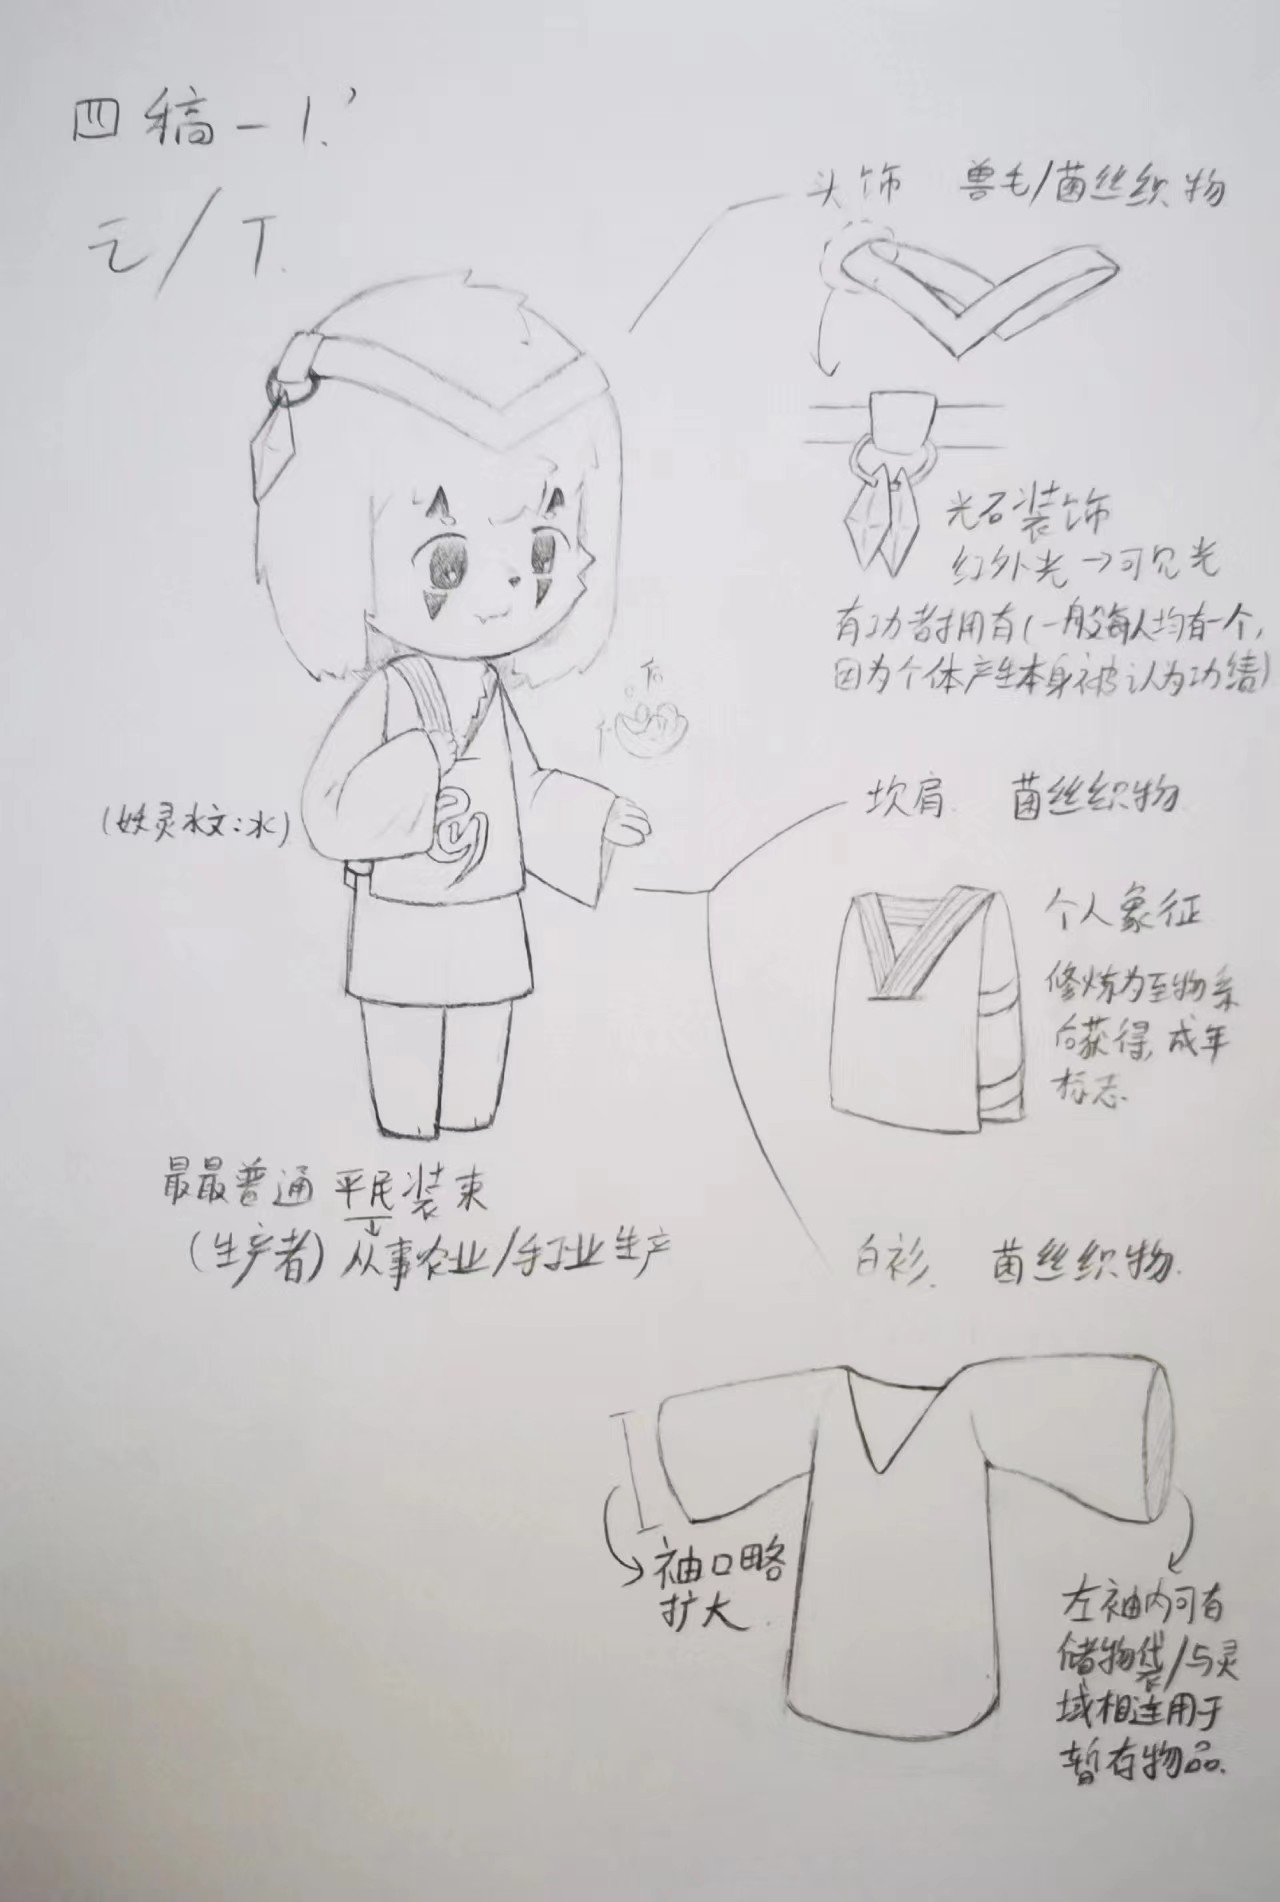 四稿-1.'
/T.
头饰 兽毛/菌丝织物
光石装饰
红外光→可见光
有功者拥有(一般每人均有一个,
因为个体产生本身被认为功绩)
坎肩. 菌丝织物.
(妖灵水文:水)
个人象征
修炼为至物系
后获得,成年
标志.
最最普通平民装束
(生产者)从事农业/手工业生产
白衫. 菌丝织物.
袖口略
扩大.
左袖内可有
储物袋/与灵
域相连用于
暂存物品.